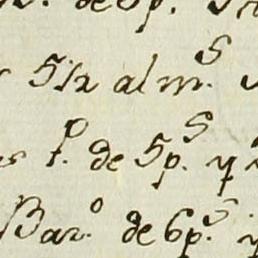 de 8p.
5 1/2 alm.s
s t.o de 5p.s y
Bar.o de 6p.s y